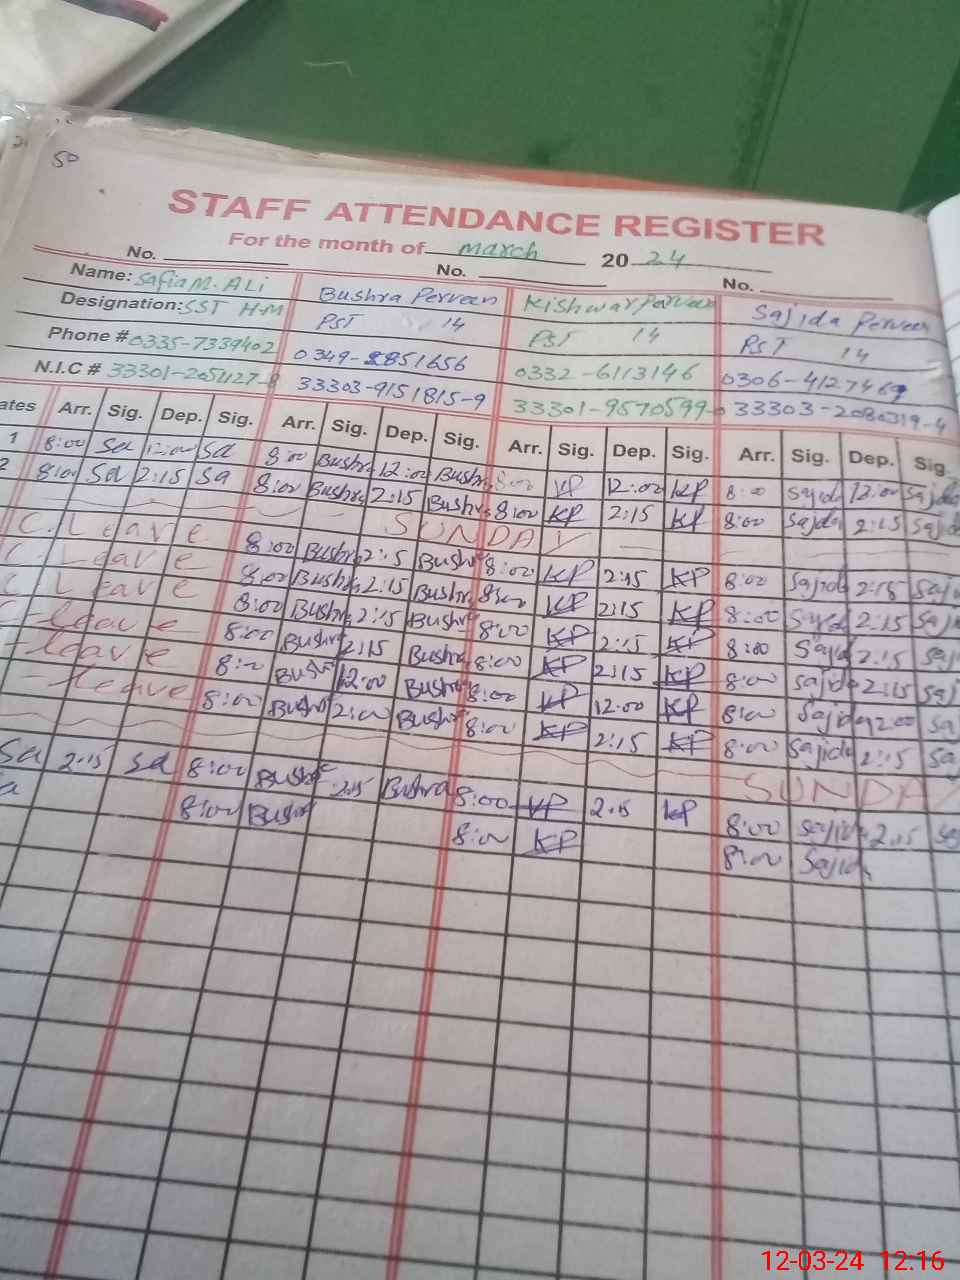 50
STAFF ATTENDANCE REGISTER
For the month of March 2024
No. No. No.
Name: Safia M. Ali Bushra Perveen Kishwar Perveen Sajida Perveen
Designation: SST H-M PST 14 PST 14 PST 14
Phone # 0335-7339402 0332-6113146
N.I.C # 33303-9151815-9
ates Arr. Sig. Dep. Sig. Arr. Sig. Dep. Sig. Arr. Sig. Dep. Sig. Arr. Sig. Dep. Sig.
1 8:00 Sa 12:00 Sa 8:00 Bushra 12:00 Bushra 8:00 KP 12:00 KP 8:00 Sajida 12:00 Sajida
2 8:00 Sa 2:15 Sa 8:00 Bushra 2:15 Bushra 8:00 KP 2:15 KP 8:00 Sajida 2:15 Sajida
SUNDAY
C. Leave 8:00 Bushra 2:15 Bushra 8:00 KP 2:15 KP 8:00 Sajida 2:15 Saji
C. Leave 8:00 Bushra 2:15 Bushra 8:00 KP 2:15 KP 8:00 2:15 Saji
C Leave 8:00 Bushra 2:15 Bushra 8:00 KP 2:15 KP 8:00 Sajid 2:15 Saji
C-leave 8:00 Bushra 2:15 Bushra 8:00 KP 2:15 KP 8:00 Sajida 2:15 Saji
leave 8:00 Bushr 12:00 Bushra 8:00 KP 12:00 KP 8:00 Sajida 12:00 Sa
leave 8:00 Bushr 2:00 Bushra 8:00 KP 2:15 KP 8:00 Sajida 2:15 Sa
SUNDAY
Sa 2:15 Sa 8:00 Bushra 2:15 Bushra 8:00 KP 2:15 KP 8:00 Sajida 2:15 Sa
a 8:00 Bushr 8:00 KP 8:00 Sajida
12-03-24 12:16